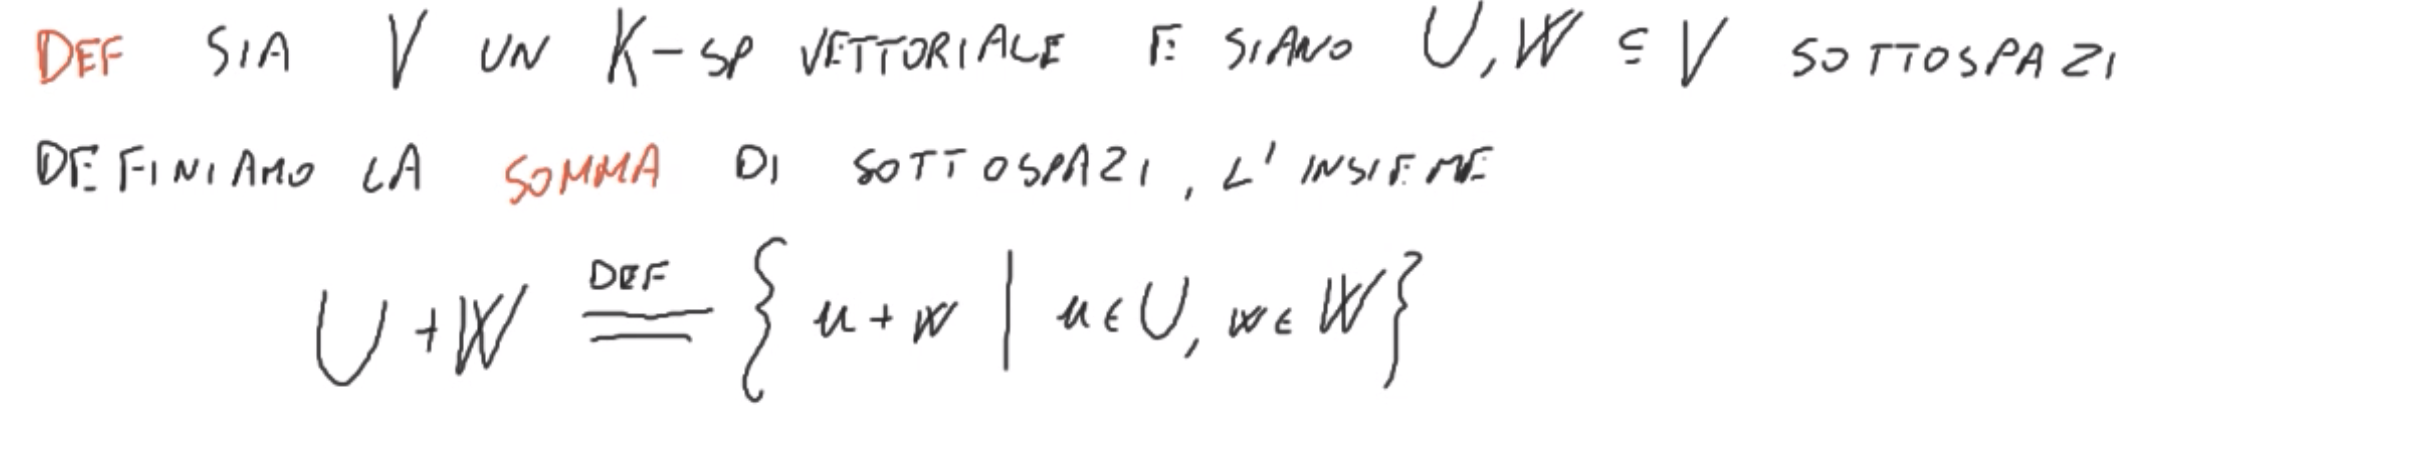 DEF SIA V UN K-SP VETTORIALE E SIANO U, W ⊆ V SOTTOSPAZI
DEFINIAMO LA SOMMA DI SOTTOSPAZI, L'INSIEME
U+W DEF= { u+w | u∈U, w∈W }